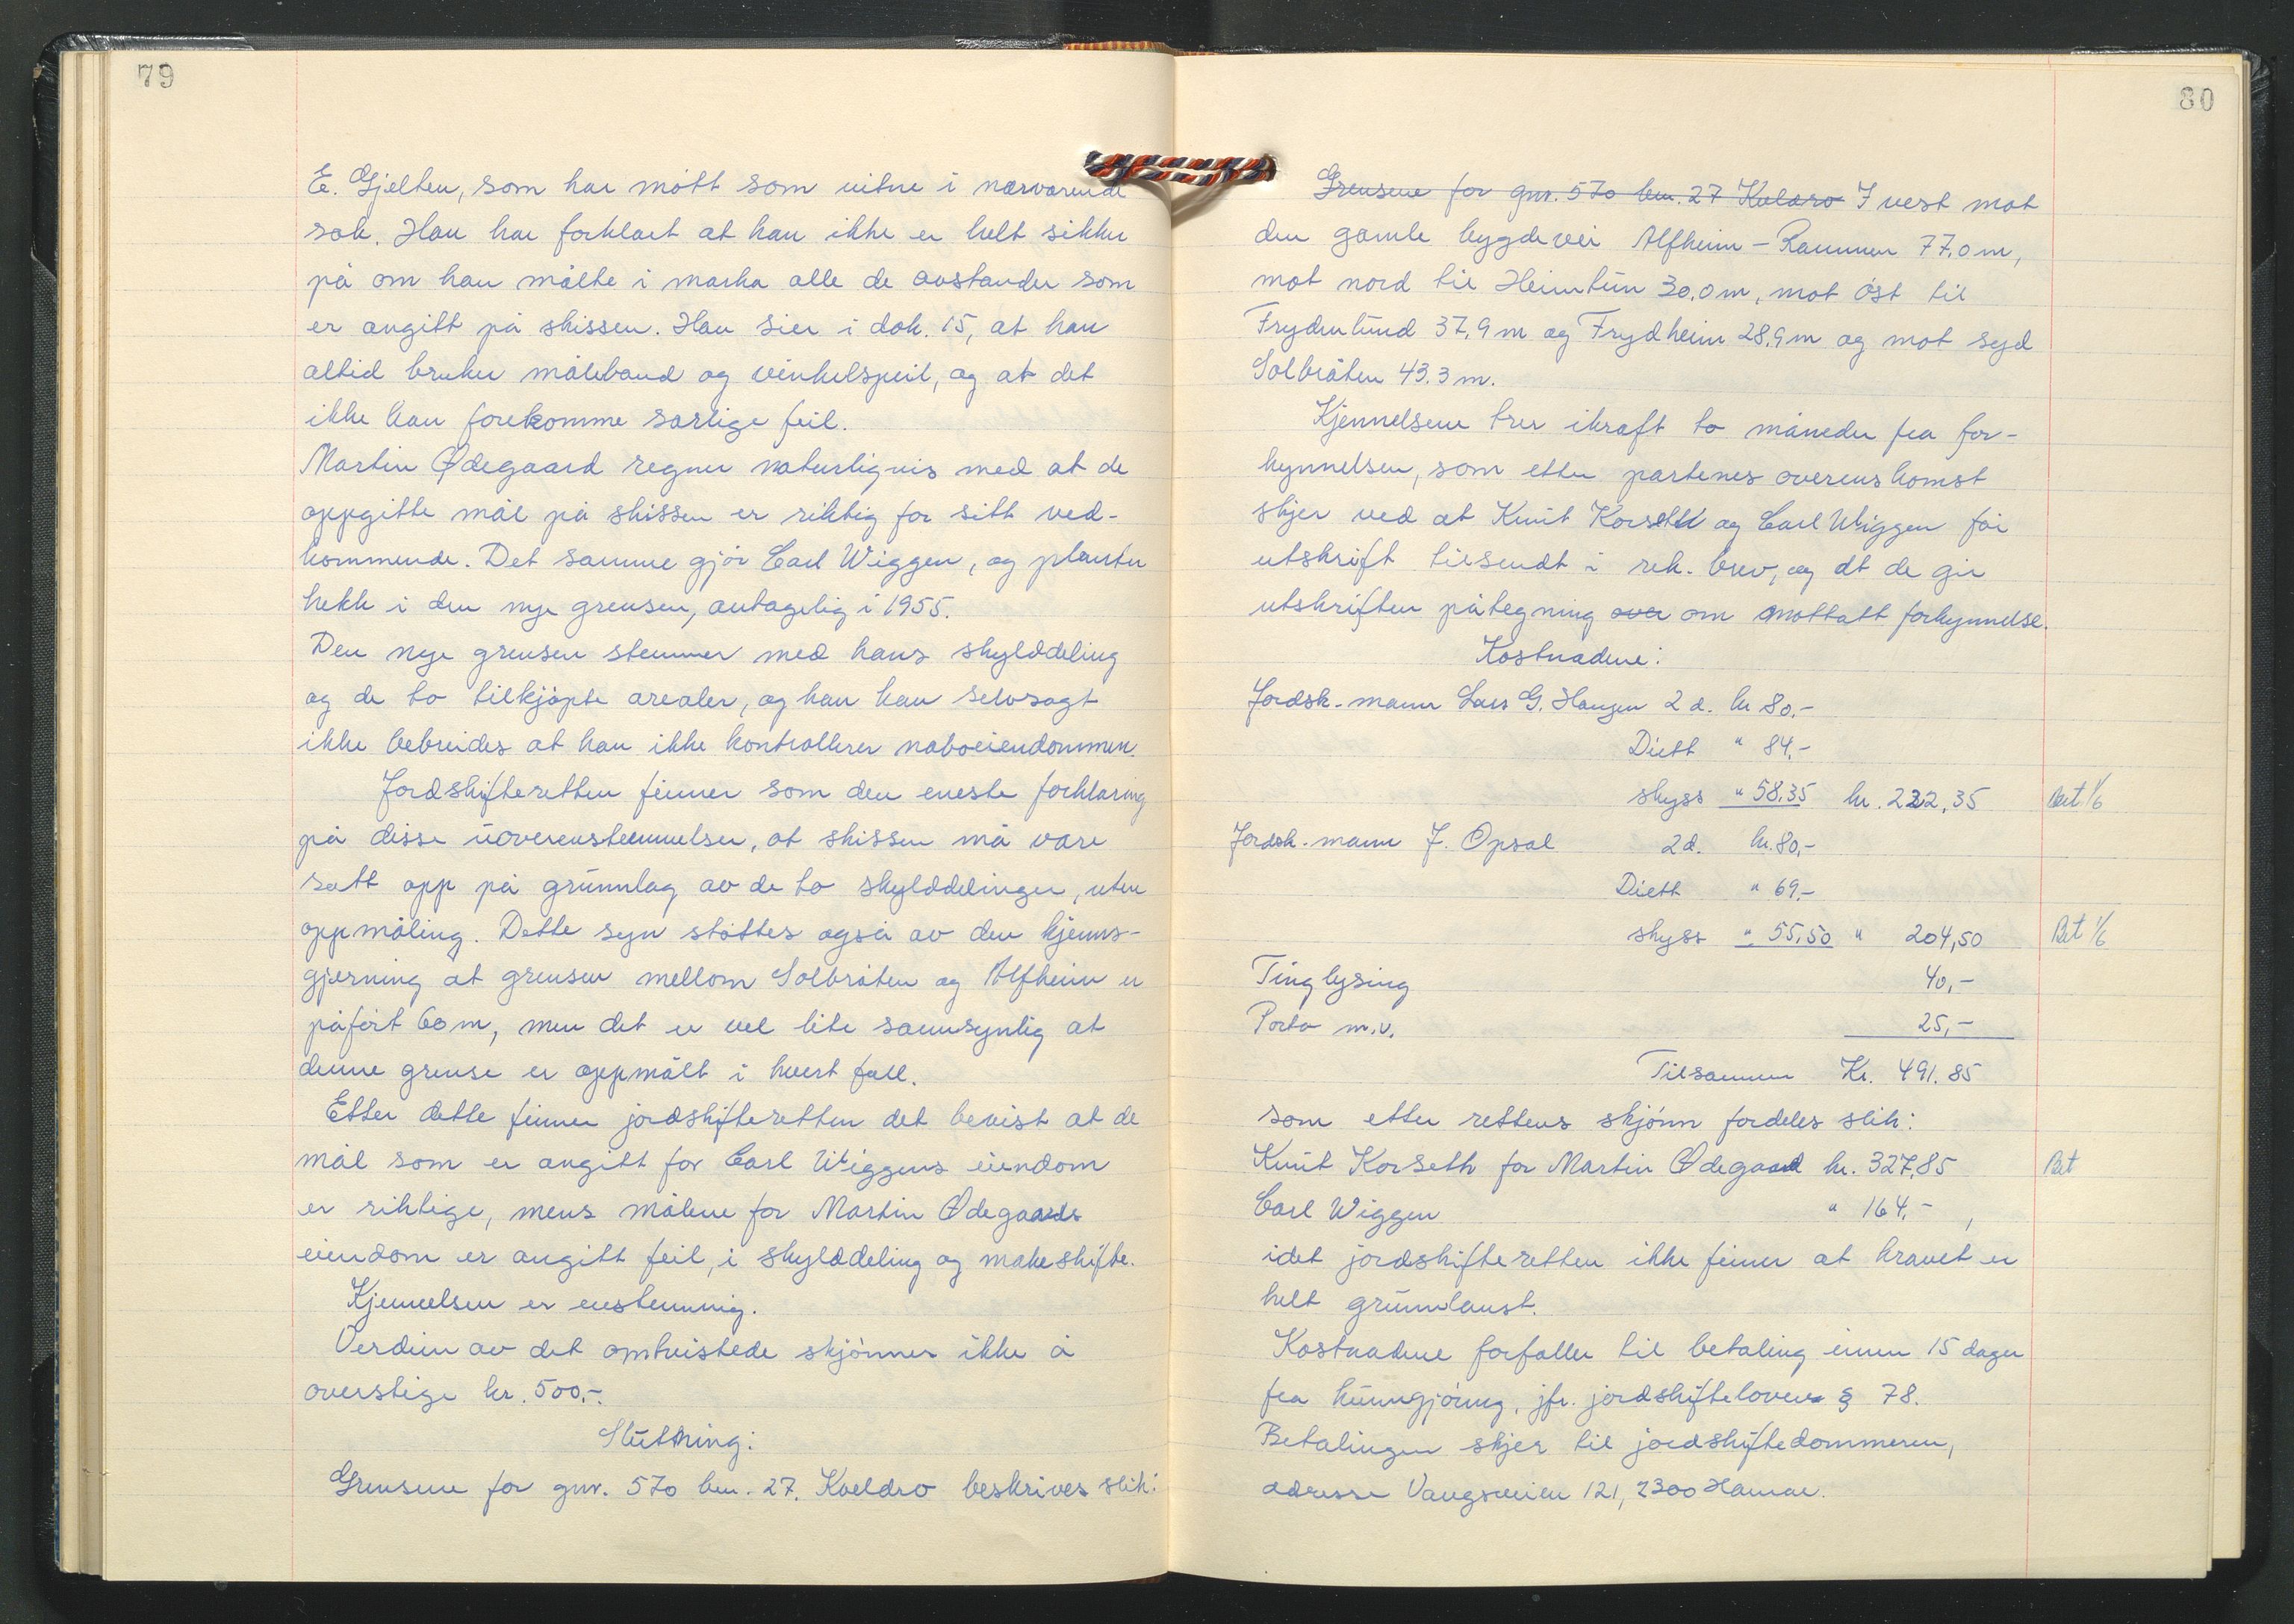 79
E. Gjelten, som har møtt som vitne i nærværende
sak. Han har forklart at han ikke er helt sikker
på om han målte i marka alle de avstander som
er angitt på skissen. Han sier i dok. 15, at han
altid bruker målebånd og vinkelspeil, og at det
ikke kan forekomme særlige feil.
Martin Ødegaard regner naturligvis med at de
oppgitte mål på skissen er riktig for sitt ved-
kommende. Det samme gjør Carl Wiggen, og planter
hekk i den nye grensen, antagelig i 1955.
Den nye grensen stemmer med hans skylddeling
og de to tilkjøpte arealer, og han kan selvsagt
ikke bebreides at han ikke kontrollerer naboeiendommen.
Jordskifteretten finner som den eneste forklaring
på disse uoverenstemmelser, at skissen må være
satt opp på grunnlag av de to skylddelinger, uten
oppmåling. Dette syn støttes også av den kjenns-
gjerning at grensen mellom Solbråten og Alfheim er
påført 60 m, men det er vel lite sannsynlig at
denne grense er oppmålt i hvert fall.
Etter dette finner jordskifteretten det bevist at de
mål som er angitt for Carl Wiggens eiendom
er riktige, mens målene for Martin Ødegaards
eiendom er angitt feil, i skylddeling og makeskifte.
Kjennelsen er enstemmig.
Verdien av det omtvistede skjønnes ikke å
overstige kr. 500,-.
Slutning:
Grensene for gnr. 570 bnr. 27. Kveldro beskrives slik:
80
Grensene for gnr. 570 bnr. 27 Kveldro I vest mot
den gamle bygdevei Alfheim - Rammen 77,0 m,
mot nord til Heimtun 30,0 m, mot øst til
Frydenlund 37,9 m og Frydheim 28,9 m og mot syd
Solbråten 43.3 m.
Kjennelsene trer ikraft to måneder fra for-
kynnelsen, som etter partenes overenskomst
skjer ved at Knut Korseth og Carl Wiggen får
utskrift tilsendt i rek. brev, og at de gir
utskriften påtegning over om mottatt forkynnelse.
Kostnadene:
Jordsk. mann Lars G. Haugen 2 d. kr 80.-
Diett " 84,-
skyss " 58,35 kr. 222,35 Bet 1/6
Jordsk. mann J. Opsal 2 d. kr. 80,-
Diett " 69.-
skyss " 55,50 " 204,50 Bet 1/6
Tinglysing 40,-
Porto m.v. 25,-
Tilsammen Kr. 491.85
som etter rettens skjønn fordeles slik:
Knut Korseth for Martin Ødegaard kr. 327,85 Bet
Carl Wiggen " 164,- ,
idet jordskifteretten ikke finner at kravet er
helt grunnlaust.
Kostnadene forfaller til betaling innen 15 dager
fra kunngjøring, jfr. jordskifteloven § 78.
Betalingen skjer til jordskiftedommeren,
adresse Vangsveien 121, 2300 Hamar.